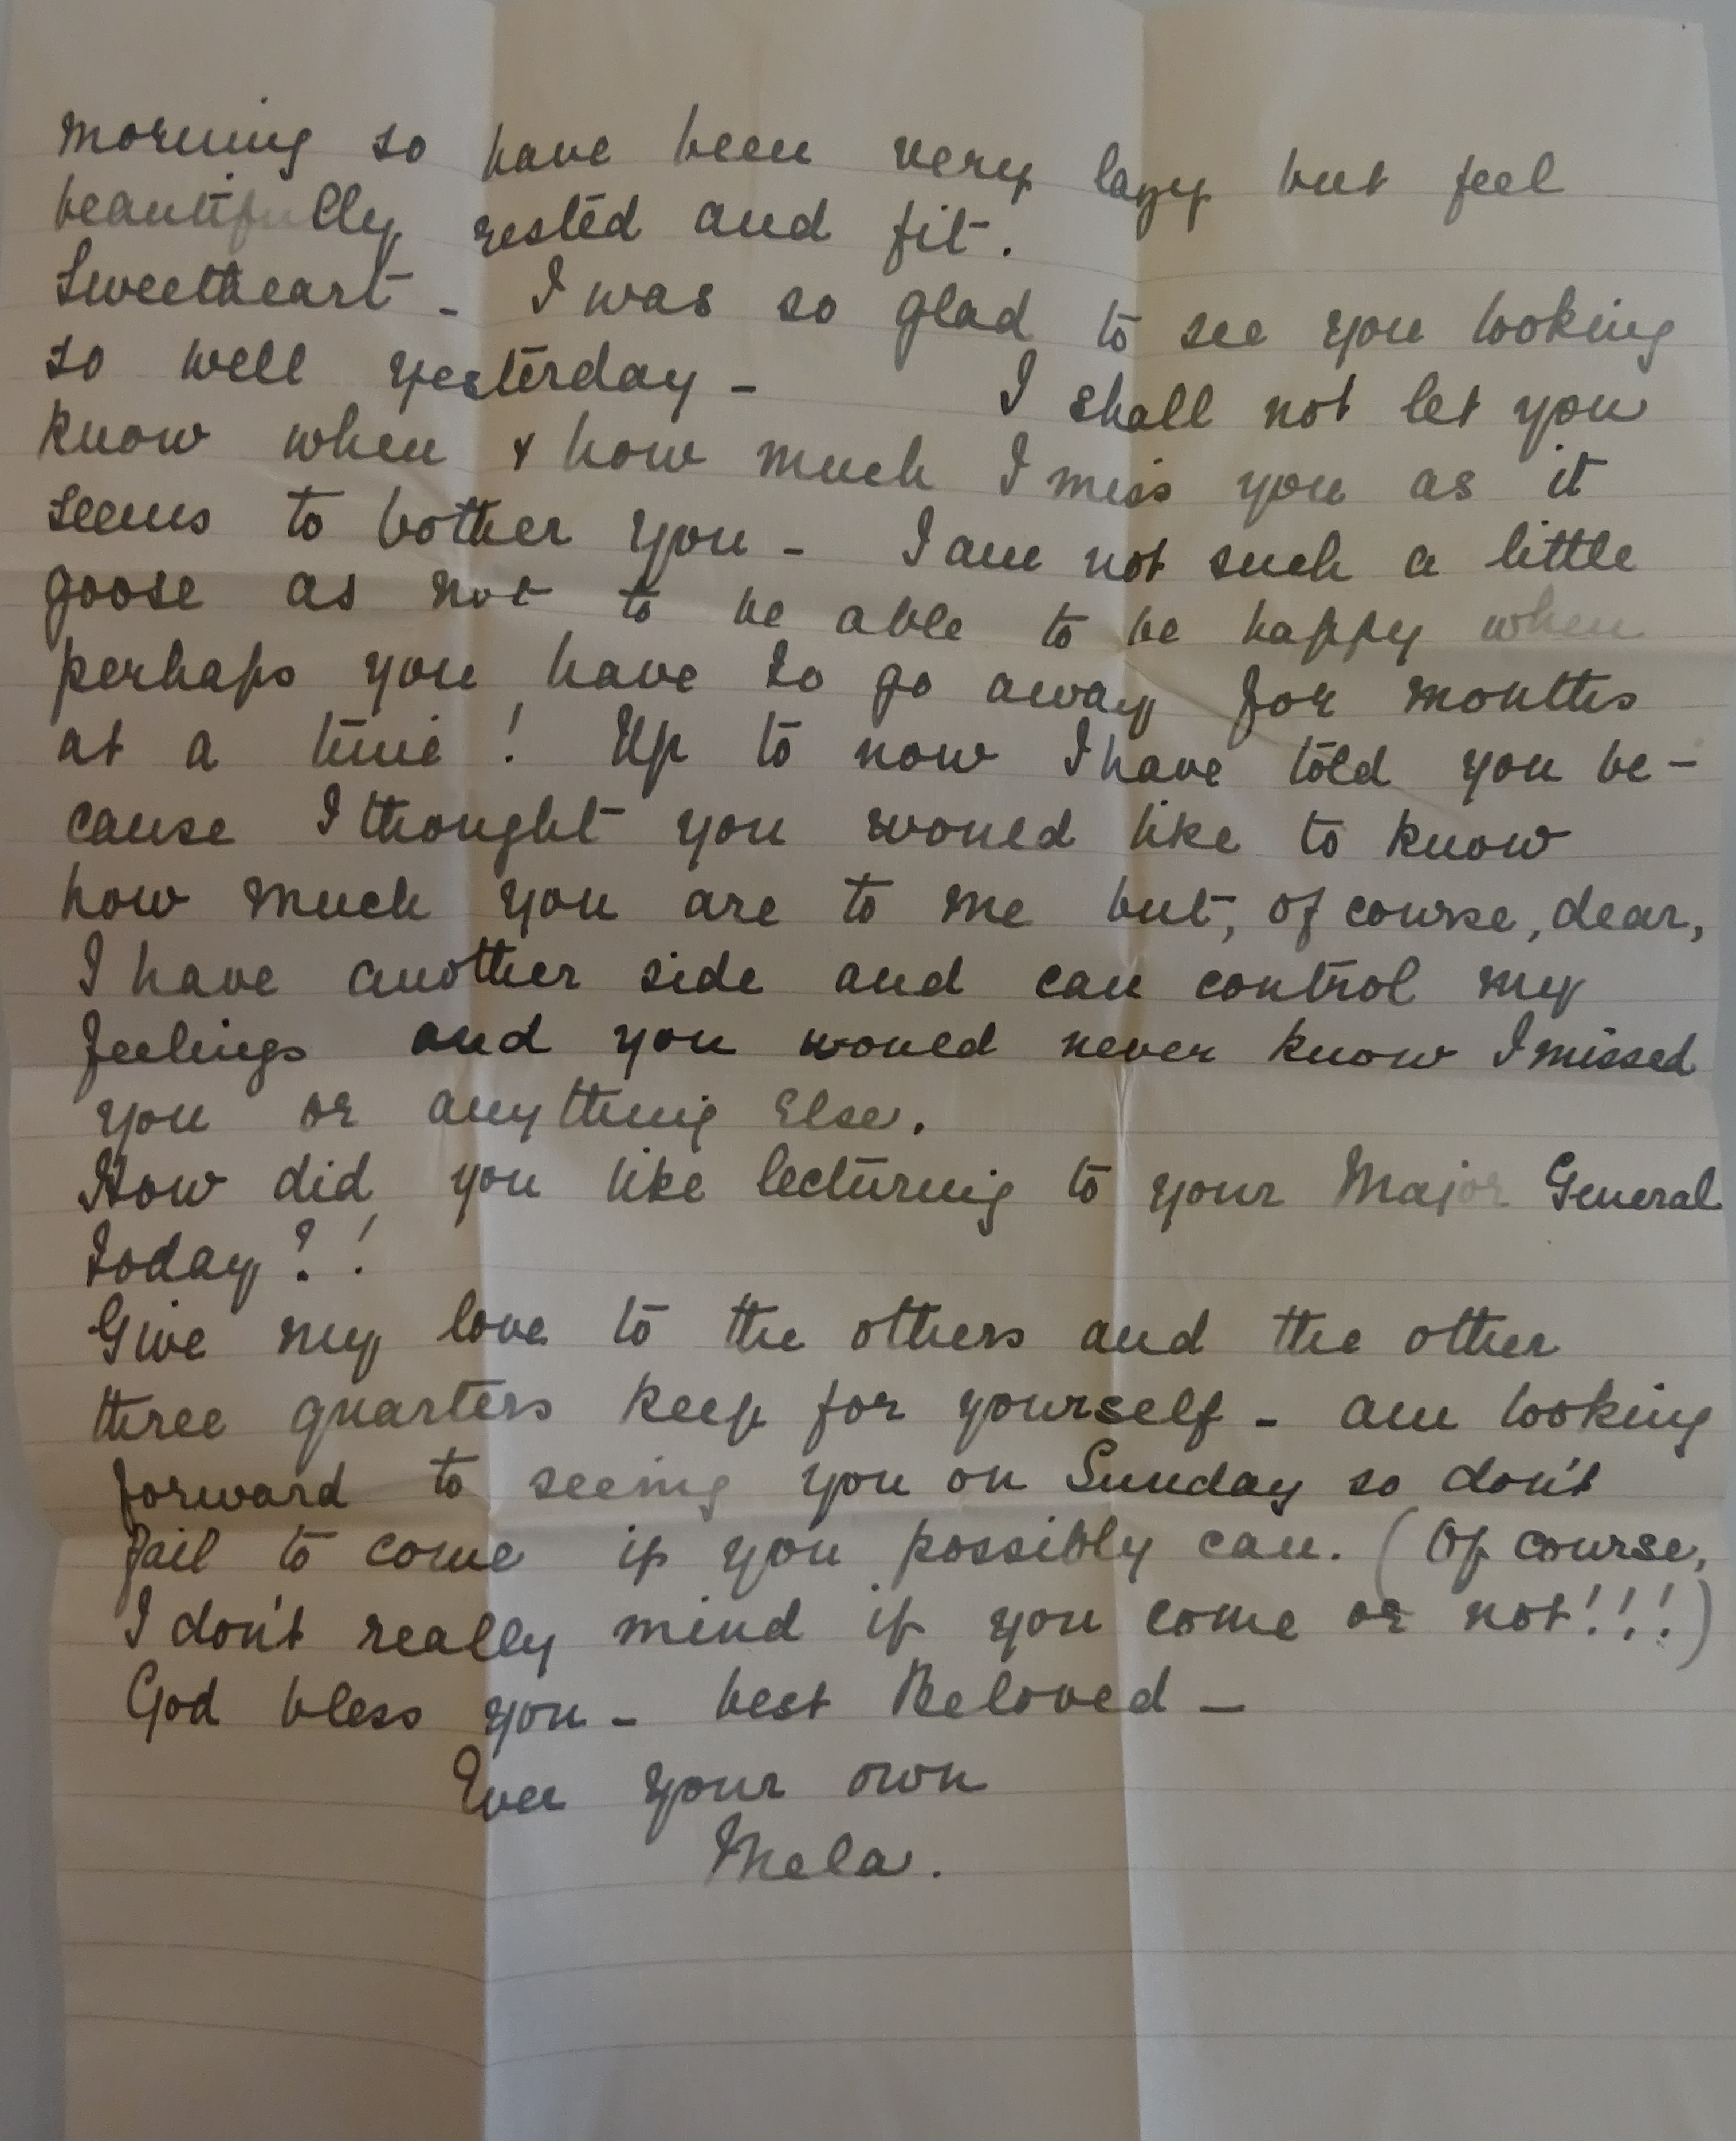 morning so have been very lazy but feel
beautifully rested and fit.
Sweetheart - I was so glad to see you looking
so well yesterday - I shall not let you
know when & how much I miss you as it
seems to bother you - I am not such a little
goose as not to be able to be happy when
perhaps you have to go away for months
at a time ! Up to now I have told you be-
cause I thought you would like to know
how much you are to me but, of course, dear,
I have another side and can control my
feelings and you would never know I missed
you or anything else.
How did you like lecturing to your Major General
today ? !
Give my love to the others and the other
three quarters keep for yourself - am looking
forward to seeing you on Sunday so don't
fail to come if you possibly can. (Of course,
I don't really mind if you come or not!!!)
God bless you - best Beloved -
Ever your own
Mela.